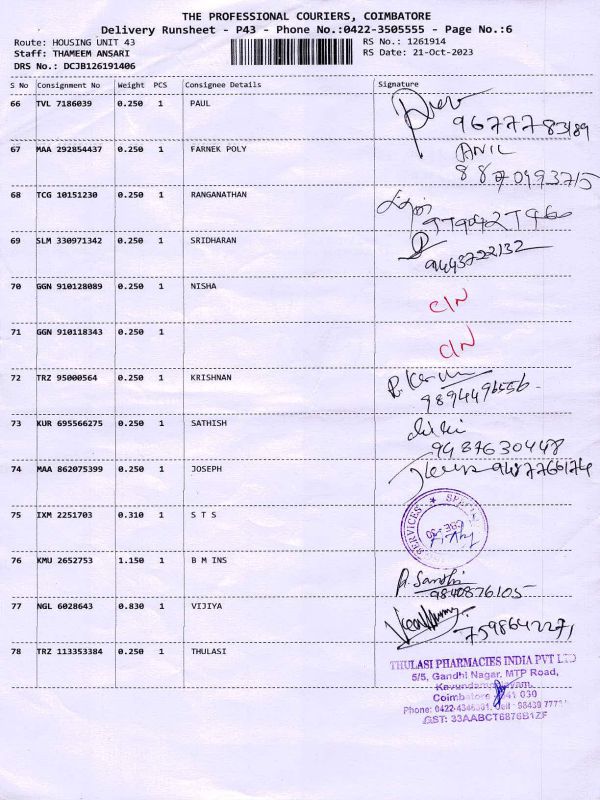 THE PROFESSIONAL COURIERS, COIMBATORE
Delivery Runsheet - P43 - Phone No.:0422-3505555 - Page No.:6
Route: HOUSING UNIT 43 RS No.: 1261914
Staff: THAMEEM ANSARI RS Date: 21-Oct-2023
DRS No.: DCJB126191406
S No Consignment No Weight PCS Consignee Details Signature
66 TVL 7186039 0.250 1 PAUL
9677783189
67 MAA 292854437 0.250 1 FARNEK POLY ANIL
8870493715
68 TCG 10151230 0.250 1 RANGANATHAN
69 SLM 330971342 0.250 1 SRIDHARAN
9443722132
70 GGN 910128089 0.250 1 NISHA C/N
71 GGN 910118343 0.250 1 C/N
72 TRZ 95000564 0.250 1 KRISHNAN
9894496556
73 KUR 695566275 0.250 1 SATHISH
9487630448
74 MAA 862075399 0.250 1 JOSEPH 9487766174
75 IXM 2251703 0.310 1 S T S SERVICES
76 KMU 2652753 1.150 1 B M INS
9840876105
77 NGL 6028643 0.830 1 VIJIYA
7598642271
78 TRZ 113353384 0.250 1 THULASI
THULASI PHARMACIES INDIA PVT LTD
5/5, Gandhi Nagar, MTP Road,
Coimbatore
Phone: 0422-
GST: 33AABCT6876B1ZF